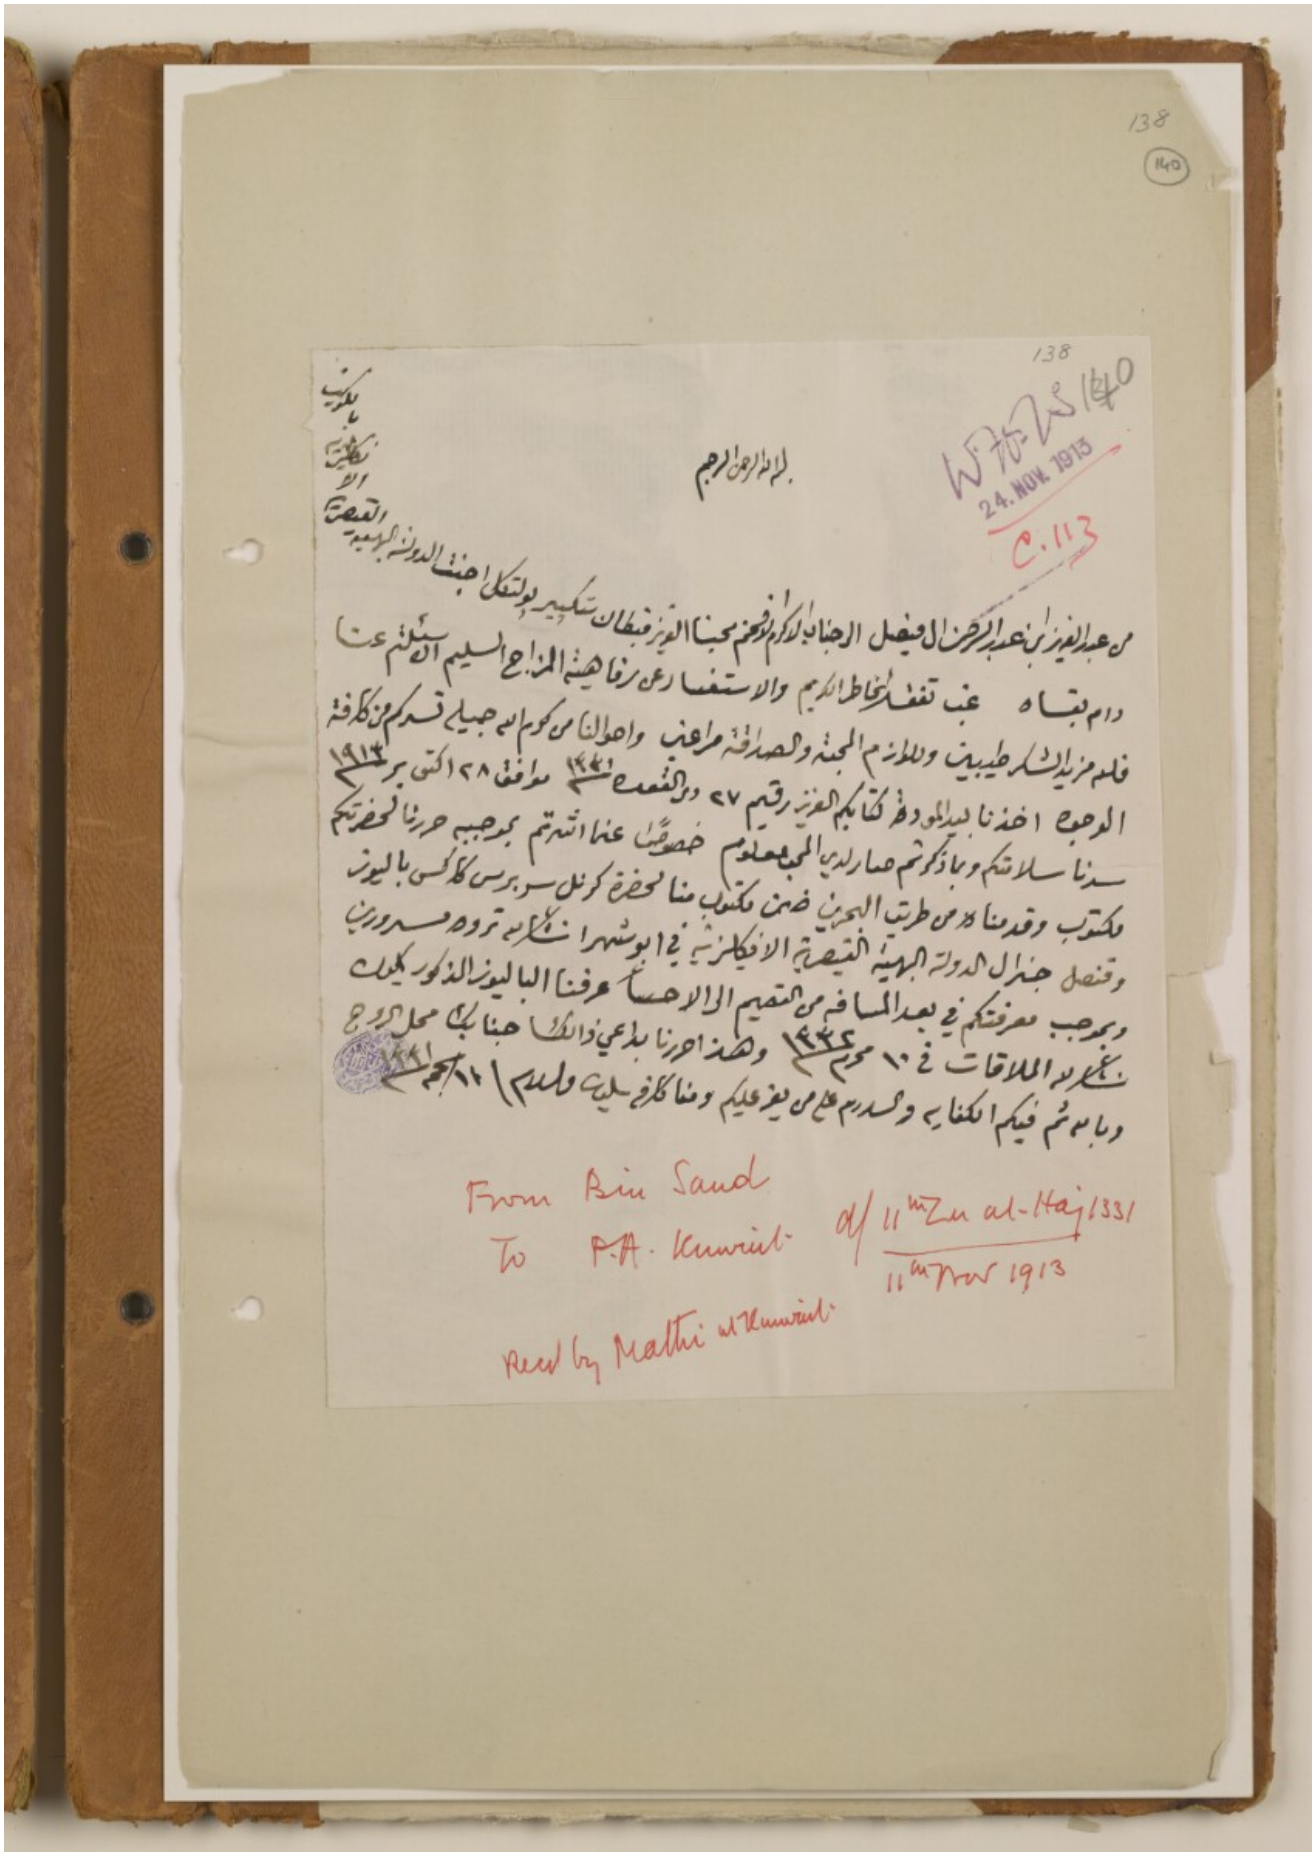 138
140
138
140
24. NOV. 1913
C. 113
بسم الله الرحمن الرحيم
من عبد العزيز ابن عبد الرحمن ال فيصل الى جناب الاكرم الافخم محبنا العزيز قبطان شكسبير بولتكل اجنت الدولة البهية القيصرية الانكليزية بالكويت
دام بقاه غب تفقد الخاطر الكريم والاستفسار عن رفاهية المزاج السليم ان سئلتم عنا
فلله مزيد الشكر طيبين وللوازم المحبة والصداقة مراعين واحوالنا من كرم الله جميله تسركم من كافة
الوجوه اخذنا بيد المودة كتابكم العزيز رقيم ٢٧ ذي القعده ١٣٣١ موافق ٢٨ اكتوبر ١٩١٣
سرنا سلامتكم وبما ذكرتم صار لدى المحب معلوم خصوصًا عنما اشرتم بموجبه حررنا لحضرتكم
مكتوب وقدمناه من طريق البحرين ضمن مكتوب منا لحضرة كرنل سر برسي كاكس باليوز
وقنصل جنرال الدولة البهية القيصرية الانكليزية في ابوشهر انشاء الله تروه مسرورين
وبموجب معرفتكم في بعد المسافه من القصيم الى الاحسا عرفنا الباليوز المذكور يكون
انشاء الله الملاقات في ١٠ محرم ١٣٣٢ وهذا حررنا بداعي ذالك جنابك محل الروح
وبالله ثم فيكم الكفايه والسلام على من يعز عليكم ومنا كافة والسلام ١١ الحجه ١٣٣١
From Bin Saud
To P.A. Kuwait d/ 11th Zu al-Haj 1331
11th Nov 1913
Recd by Mathi at Kuwait